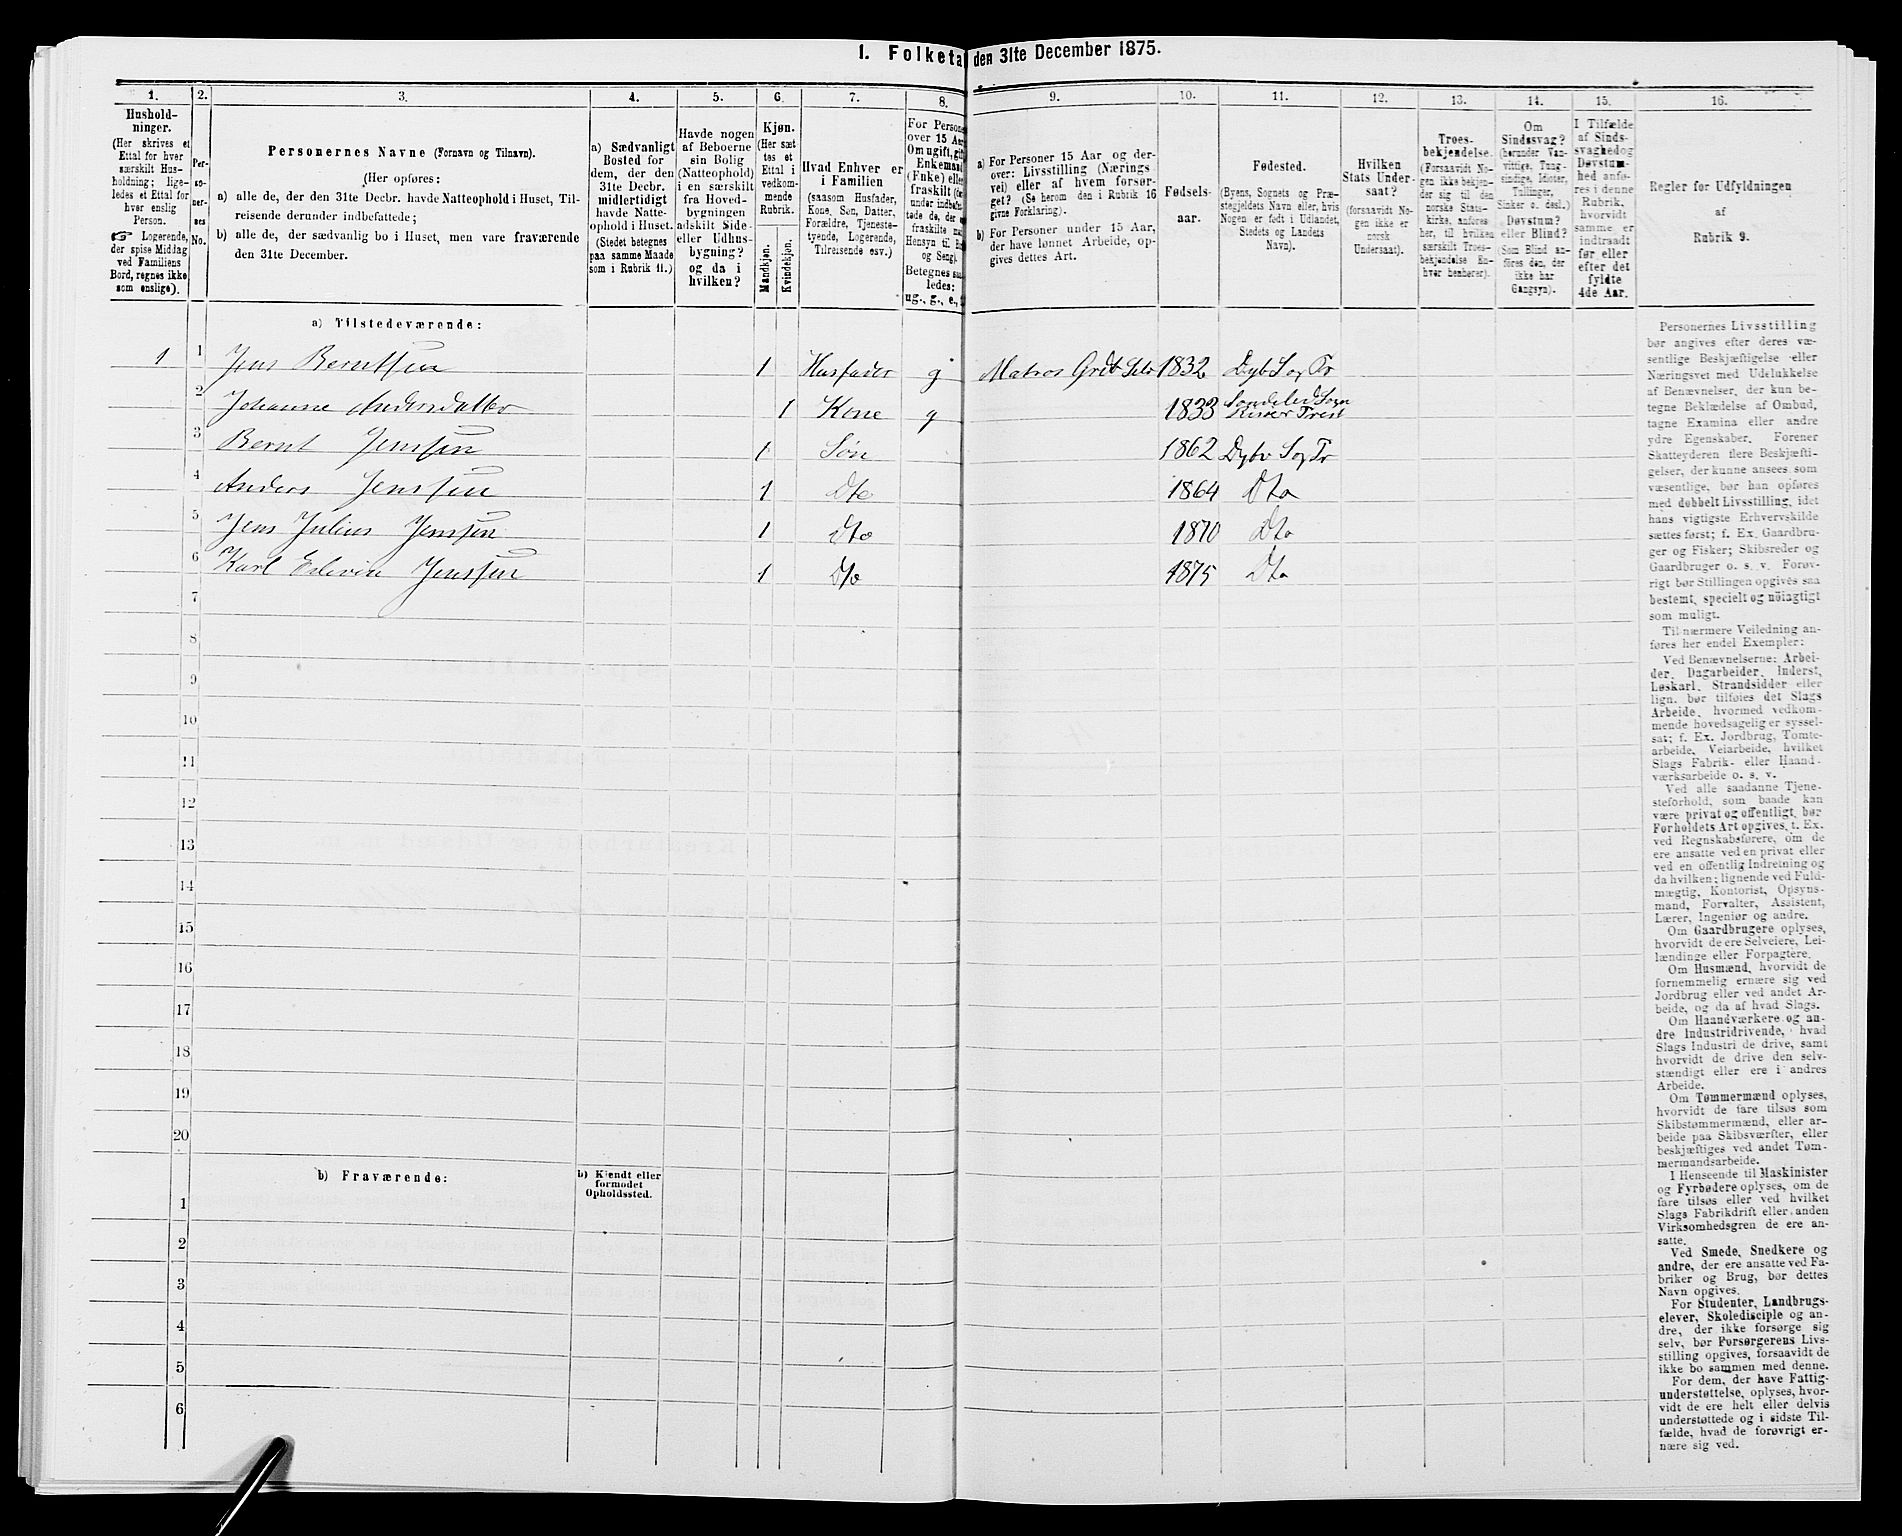 1. Folketa den 31te December 1875.
1. 2. 3. 4. 5. 6. 7. 8. 9. 10. 11. 12. 13. 14. 15. 16.
Husholdninger.
(Her skrives et
Ettal for hver
særskilt Husholdning;
ligeledes et Ettal for
hver enslig
Person.
☞ Logerende,
der spise Middag
ved Familiens
Bord, regnes ikke
som enslige).
Personernes
No.
Personernes Navne (Fornavn og Tilnavn).
(Her opføres:
a) alle de, der den 31te Decbr. havde Natteophold i Huset, Tilreisende
derunder indbefattede;
b) alle de, der sædvanlig bo i Huset, men vare fraværende
den 31te December.
a) Sædvanligt
Bosted for
dem, der den
31te Decbr.
midlertidigt
havde Natteophold
i Huset.
(Stedet betegnes
paa samme Maade
som i Rubrik 11.)
Havde nogen
af Beboerne
sin Bolig
(Natteophold)
i en særskilt
fra Hovedbygningen
adskilt Side-
eller Udhusbygning?
og da i
hvilken?
Kjøn.
(Her sættes
et
Ettal i
vedkommende
Rubrik.
Mandkjøn.
Kvindekjøn.
Hvad Enhver er
i Familien
(saasom Husfader,
Kone, Søn, Datter,
Forældre, Tjenestetyende,
Logerende,
Tilreisende osv.)
For Persone
over 15 Aar
Om ugift, gift
Enkemand
(Enke) elle
fraskilt
Betegnes saaledes:
ug., g., e.,
a) For Personer 15 Aar og derover:
Livsstilling (Næringsvei)
eller af hvem forsørget?
(Se herom den i Rubrik 16
givne Forklaring).
b) For Personer under 15 Aar,
der have lønnet Arbeide, opgives
dettes Art.
Fødselsaar.
Fødested.
(Byens, Sognets og Præstegjeldets
Navn eller, hvis
Nogen er født i Udlandet,
Stedets og Landets
Navn).
Hvilken
Stats Undersaat?
(forsaavidt Nogen
ikke er
norsk
Undersaat).
Troesbekjendelse.
(Forsaavidt Nogen
ikke bekjender
sig til den
norske Statskirke,
anføres
her, til hvilken
særskilt Troesbekjendelse
Enhver
henhører).
Om
Sindssvag?
(herunder Vanvittige,
Tungsindige,
Idioter,
Tullinger,
Sinker o. desl.)
Døvstum?
eller Blind?
(Som Blind anføres
den, der
ikke har
Gangsyn).
I Tilfælde
af Sindssvaghed
og
Døvstumhed
anføres
i denne
Rubrik,
hvorvidt
samme er
indtraadt
før eller
efter det
fyldte
4de Aar.
Regler for Udfyldningen
af
Rubrik 9.
a) Tilstedeværende:
1 1 Jens Berntsen 1 Husfader g Matros 1832 Dybv S og Pr
2 Johanne Andersdatter 1 Kone g 1833 Søndeled Sogn Risøer Prest
3 Bernt Jenssen 1 Søn 1862 Dybv S og Pr
4 Anders Jenssen 1 Dto 1864 Dto
5 Jens Julius Jenssen 1 Dto 1870 Dto
6 Karl Jenssen 1 Dto 1875 Dto
7
8
9
10
11
12
13
14
15
16
17
18
19
20
b) Fraværende: b) Kjendt eller
formodet
Opholdssted.
1
2
3
4
5
6
Personernes Livsstilling
bør angives efter deres væsentlige
Beskjæftigelse eller
Næringsvei med Udelukkelse
af Benævnelser, der kun betegne
Beklædelse af Ombud,
tagne Examina eller andre
ydre Egenskaber. Forener
Skatteyderen flere Beskjæftigelser,
der kunne ansees som
væsentlige, bør han opføres
med dobbelt Livsstilling, idet
hans vigtigste Erhvervskilde
sættes først; f. Ex. Gaardbruger
og Fisker; Skibsreder og
Gaardbruger o. s. v. Forøvrigt
bør Stillingen opgives saa
bestemt, specielt og nøiagtigt
som muligt.
Til nærmere Veiledning anføres
her endel Exempler:
Ved Benævnelserne: Arbeider,
Dagarbeider, Inderst,
Løskarl, Strandsidder eller
lign. bør tilføies det Slags
Arbeide, hvormed vedkommende
hovedsagelig er sysselsat;
f. Ex. Jordbrug, Tomtearbeide,
Veiarbeide, hvilket
Slags Fabrik- eller Haandværksarbeide
o. s. v.
Ved alle saadanne Tjenesteforhold,
som baade kan
være privat og offentligt, bør
Forholdets Art opgives, t. Ex.
ved Regnskabsførere, om de
ere ansatte ved en privat eller
ved en offentlig Indretning og
da hvilken; lignende ved Fuldmægtig,
Kontorist, Opsynsmand,
Forvalter, Assistent,
Lærer, Ingeniør og andre.
Om Gaardbrugere oplyses,
hvorvidt de ere Selveiere, Leilændinge
eller Forpagtere.
Om Husmænd, hvorvidt de
fornemmelig ernære sig ved
Jordbrug eller ved andet Arbeide,
og da af hvad Slags.
Om Haandværkere og andre
Industridrivende, hvad
Slags Industri de drive, samt
hvorvidt de drive den selvstændigt
eller ere i andres
Arbeide.
Om Tømmermænd oplyses,
hvorvidt de fare tilsøs som
Skibstømmermænd, eller arbeide
paa Skibsværfter, eller
beskjæftiges ved andet Tømmermandsarbeide.
I Henseende til Maskinister
og Fyrbødere oplyses, om de
fare tilsøs eller ved hvilket
Slags Fabrikdrift eller anden
Virksomhedsgren de ere ansatte.
Ved Smede, Snedkere og
andre, der ere ansatte ved Fabriker
og Brug, bør dettes
Navn opgives.
For Studenter, Landbrugselever,
Skoledisciple og andre,
der ikke forsørge sig
selv, bør Forsørgerens Livsstilling
opgives, forsaavidt de
ikke bo sammen med denne.
For dem, der have Fattigunderstøttelse,
oplyses, hvorvidt
de ere helt eller delvis
understøttede og i sidste Tilfælde,
hvad de forøvrigt ernære
sig ved.